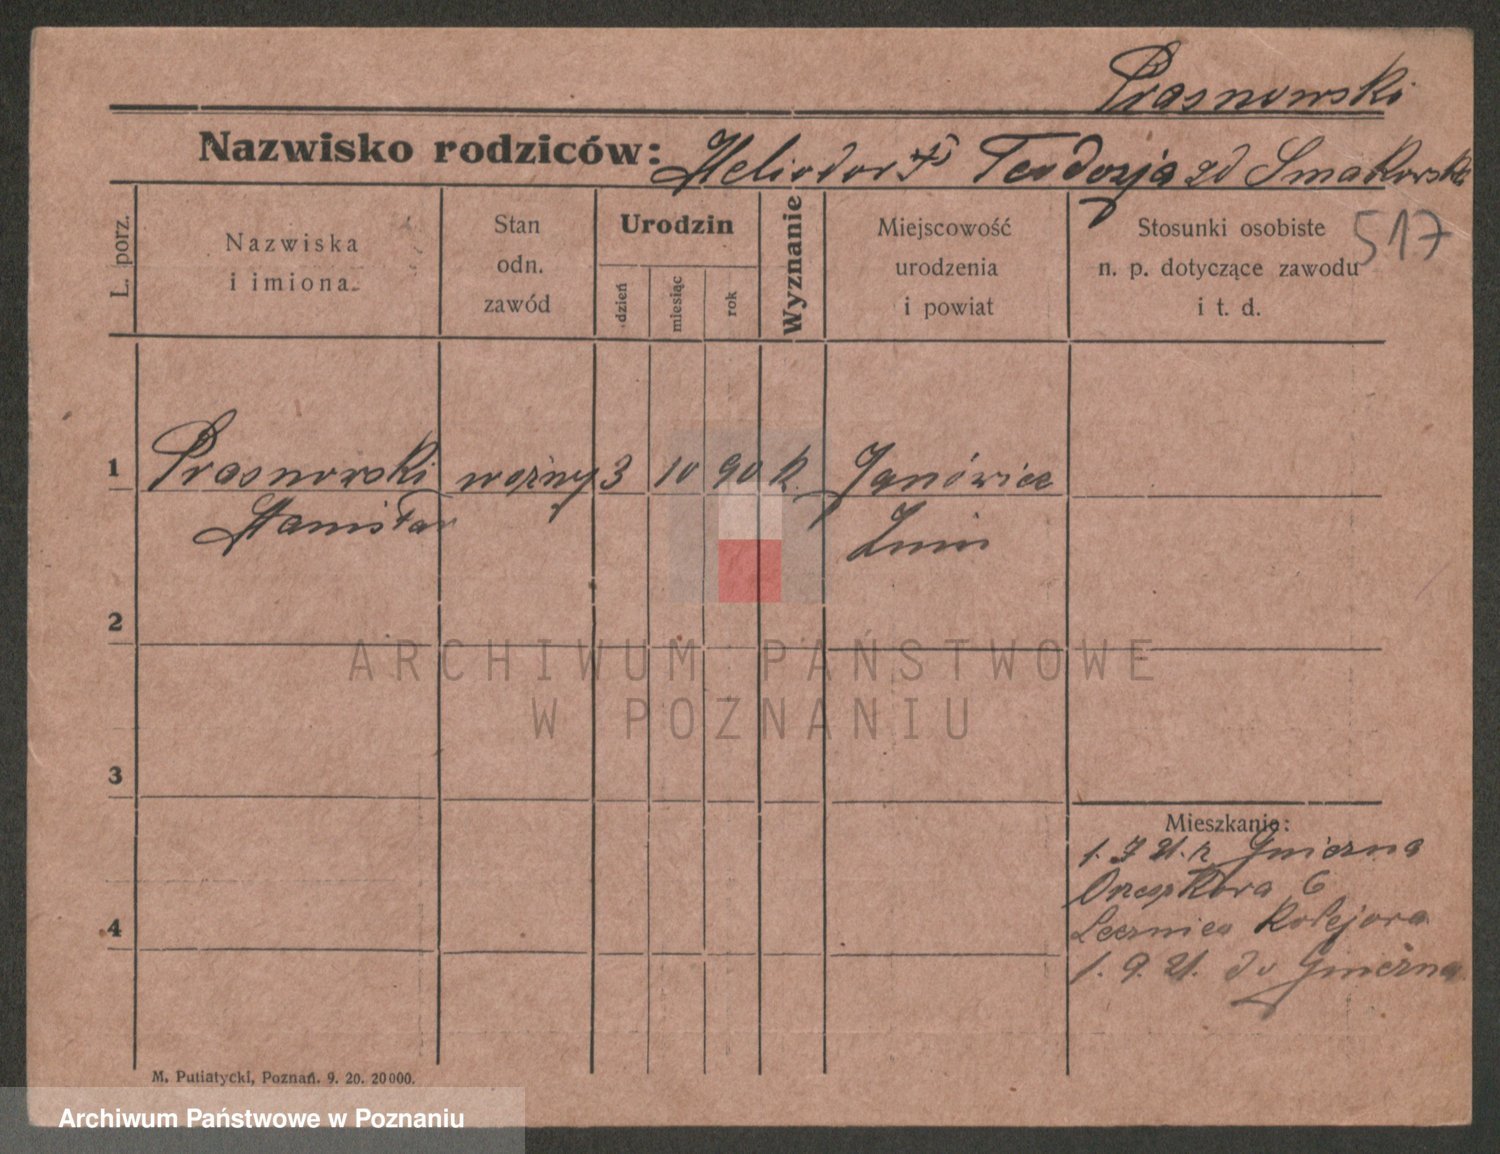 Prasnowski
Nazwisko rodziców: Heliodor Teodozja zd Smakorsk
517
L. porz.
Nazwiska
i imiona.
Stan
odn.
zawód
Urodzin
dzień
miesiąc
rok
Wyznanie
Miejscowość
urodzenia
i powiat
Stosunki osobiste
n. p. dotyczące zawodu
i t. d.
1 Prasnowski woźny 3 10 90 k. Janówiec
Stanisław Żnin
2
ARCHIWUM PAŃSTWOWE
W POZNANIU
3
Mieszkanie:
1. 7 21. z Gniezna
Orzeszkowa 6
4
Lecznica Kolejowa
1. 9. 21. do Gniezna
M. Putiatycki, Poznań. 9. 20. 20000.
Archiwum Państwowe w Poznaniu